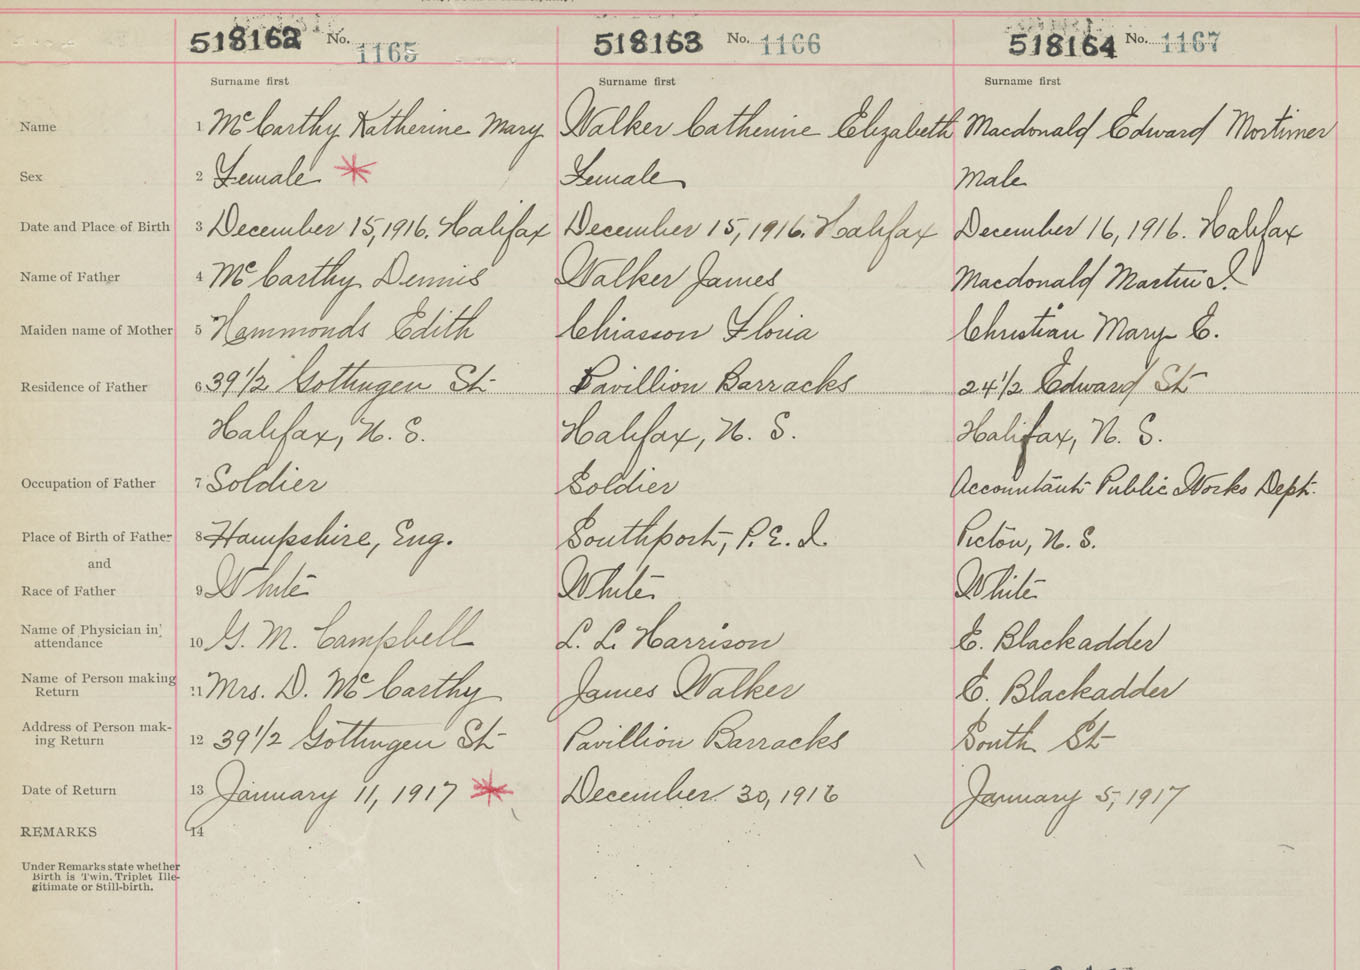 518162 No. 1165 518163 No. 1166 518164 No. 1167
Surname first Surname first Surname first
Name 1 McCarthy Katherine Mary Walker Catherine Elizabeth Macdonald Edward Mortimer
Sex 2 Female * Female Male
Date and Place of Birth 3 December 15, 1916. Halifax December 15, 1916. Halifax December 16, 1916. Halifax
Name of Father 4 McCarthy Dennis Walker James Macdonald Martin I.
Maiden name of Mother 5 Hammonds Edith Chiasson Floria Christian Mary E.
Residence of Father 6 39 1/2 Gottingen St Pavillion Barracks 24 1/2 Edward St
Halifax, N. S. Halifax, N. S. Halifax, N. S.
Occupation of Father 7 Soldier Soldier Accountant Public Works Dept.
Place of Birth of Father 8 Hampshire, Eng. Southport, P. E. I. Pictou, N. S.
and
Race of Father 9 White White White
Name of Physician in attendance 10 G. M. Campbell L. L. Harrison E. Blackadder
Name of Person making Return 11 Mrs. D. McCarthy James Walker E. Blackadder
Address of Person mak-
ing Return 12 39 1/2 Gottingen St Pavillion Barracks South St
Date of Return 13 January 11, 1917 * December 30, 1916 January 5, 1917
REMARKS 14
Under Remarks state whether
Birth is Twin. Triplet Ille-
gitimate or Still-birth.